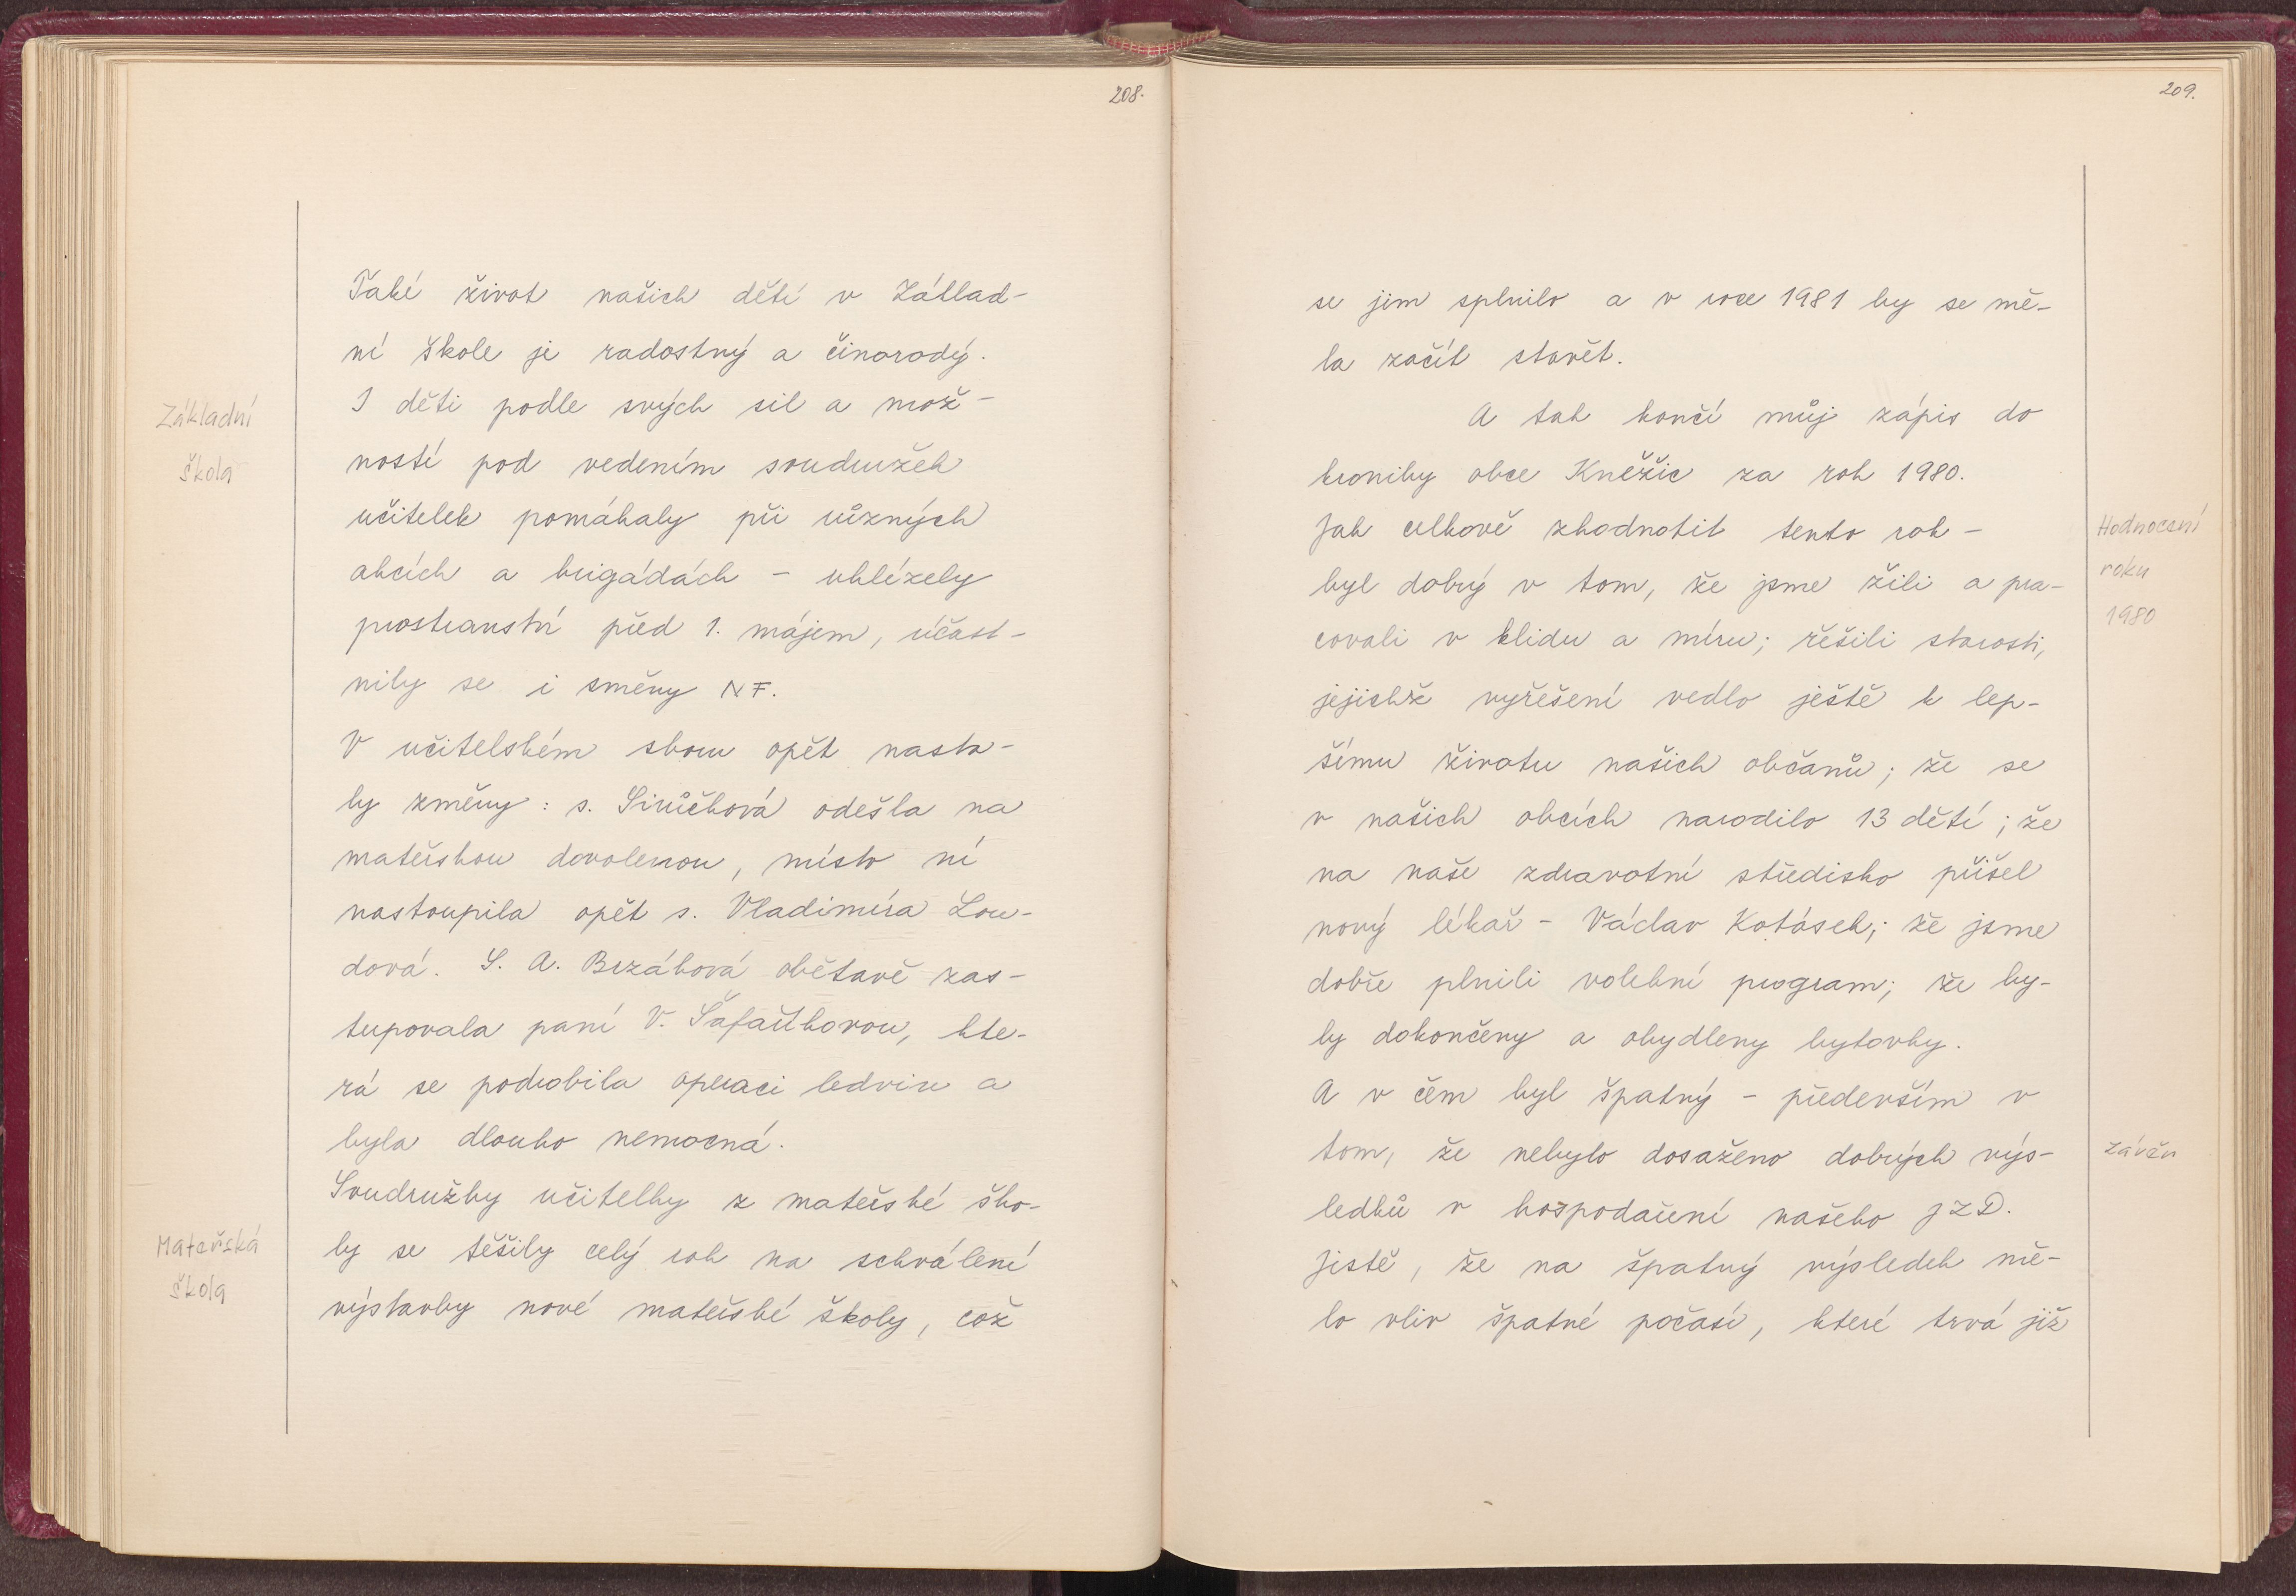 208.
Také život našich dětí v Základ-
ní škole je radostný a činorodý.
I děti podle svých sil a mož-
Základní
škola
ností pod vedením soudružek
učitelek pomáhaly při různých
akcích a brigádách - uklízely
prostranství před 1. májem, účast-
nily se i směny NF.
V učitelském sboru opět nasta-
ly změny: s. Sirůčková odešla na
mateřskou dovolenou, místo ní
nastoupila opět s. Vladimíra Lou-
dová. S. A. Brzáková obětavě zas-
tupovala paní V. Šafaříkovou, kte-
rá se podrobila operaci ledvin a
byla dlouho nemocná.
Soudružky učitelky z mateřské ško-
Mateřská
škola
ly se těšily celý rok na schválení
výstavby nové mateřské školy, což
209.
se jim splnilo a v roce 1981 by se mě-
la začít stavět.
A tak končí můj zápis do
kroniky obce Kněžic za rok 1980.
Jak celkově zhodnotit tento rok -
Hodnocení
roku
1980
byl dobrý v tom, že jsme žili a pra-
covali v klidu a míru; řešili starosti,
jejichž vyřešení vedlo ještě k lep-
šímu životu našich občanů; že se
v našich obcích narodilo 13 dětí; že
na naše zdravotní středisko přišel
nový lékař - Václav Kotásek; že jsme
dobře plnili volební program; že by-
ly dokončeny a obydleny bytovky.
A v čem byl špatný - především v
tom, že nebylo dosaženo dobrých výs-
závěr
ledků v hospodaření našeho JZD.
Jistě, že na špatný výsledek mě-
lo vliv špatné počasí, které trvá již